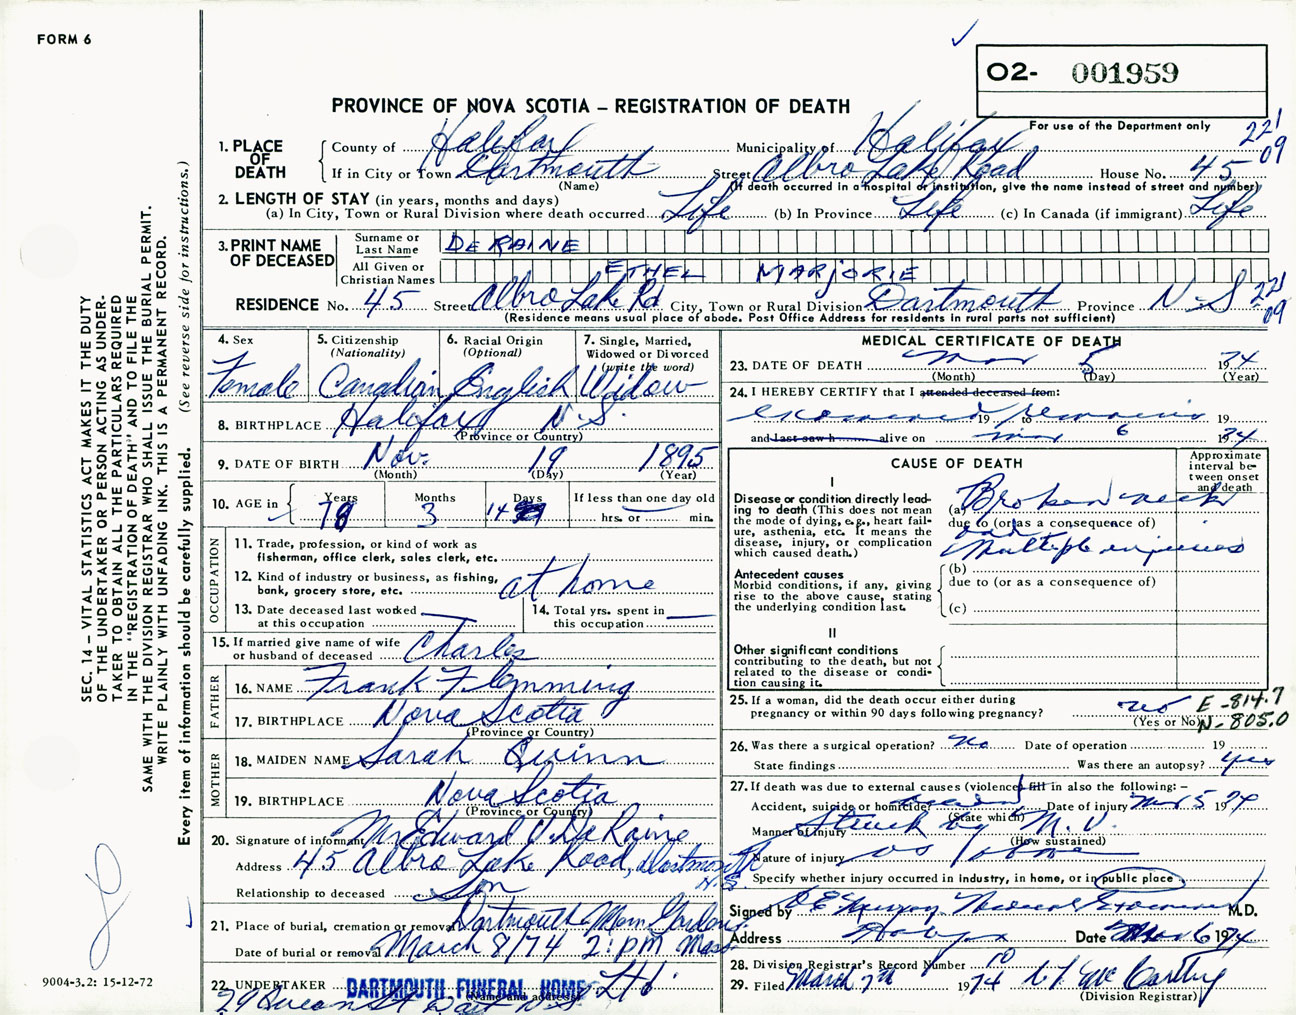 FORM 6
O2- 001959
PROVINCE OF NOVA SCOTIA – REGISTRATION OF DEATH
For use of the Department only
221
09
1. PLACE OF DEATH
County of Halifax Municipality of Halifax
If in City or Town Dartmouth Street Albro Lake Road House No. 45
(Name) (If death occurred in a hospital or institution, give the name instead of street and number)
2. LENGTH OF STAY (in years, months and days)
(a) In City, Town or Rural Division where death occurred Life (b) In Province Life (c) In Canada (if immigrant) Life
3. PRINT NAME OF DECEASED
Surname or Last Name DE RAINE
All Given or Christian Names ETHEL MARJORIE
RESIDENCE No. 45 Street Albro Lake Rd City, Town or Rural Division Dartmouth Province N.S 221
09
(Residence means usual place of abode. Post Office Address for residents in rural parts not sufficient)
4. Sex
Female
5. Citizenship
(Nationality)
Canadian
6. Racial Origin
(Optional)
English
7. Single, Married,
Widowed or Divorced
(write the word)
Widow
8. BIRTHPLACE Halifax N.S.
(Province or Country)
9. DATE OF BIRTH Nov. 19 1895
(Month) (Day) (Year)
10. AGE in
Years 78
Months 3
Days 14
If less than one day old
hrs. or min.
OCCUPATION
11. Trade, profession, or kind of work as
fisherman, office clerk, sales clerk, etc.
12. Kind of industry or business, as fishing,
bank, grocery store, etc. at home
13. Date deceased last worked
at this occupation
14. Total yrs. spent in
this occupation
15. If married give name of wife
or husband of deceased Charles
FATHER
16. NAME Frank Flemming
17. BIRTHPLACE Nova Scotia
(Province or Country)
MOTHER
18. MAIDEN NAME Sarah Quinn
19. BIRTHPLACE Nova Scotia
(Province or Country)
20. Signature of informant Mr Edward V. DeRaine
Address 45 Albro Lake Road, Dartmouth
N.S.
Relationship to deceased Son
21. Place of burial, cremation or removal Dartmouth Mem. Gardens
Date of burial or removal March 8/74 2: pm
22. UNDERTAKER DARTMOUTH FUNERAL HOME Ltd.
(Name and address)
29 Queen St Dart N.S
MEDICAL CERTIFICATE OF DEATH
23. DATE OF DEATH Mar 5 1974
(Month) (Day) (Year)
24. I HEREBY CERTIFY that I attended deceased from:
examined 19 to remains 19
and last saw h alive on Mar 6 1974
CAUSE OF DEATH
Approximate
interval be-
tween onset
and death
I
Disease or condition directly lead-
ing to death (This does not mean
the mode of dying, e.g., heart fail-
ure, asthenia, etc. It means the
disease, injury, or complication
which caused death.)
(a) Broken neck
due to (or as a consequence of)
and
Multiple injuries
Antecedent causes
Morbid conditions, if any, giving
rise to the above cause, stating
the underlying condition last.
(b)
due to (or as a consequence of)
(c)
II
Other significant conditions
contributing to the death, but not
related to the disease or condi-
tion causing it.
25. If a woman, did the death occur either during
pregnancy or within 90 days following pregnancy? no
(Yes or No)
E-814.7
N-805.0
26. Was there a surgical operation? No Date of operation 19
State findings Was there an autopsy? yes
27. If death was due to external causes (violence) fill in also the following: –
Accident, suicide or homicide? accident Date of injury Mar 5 1974
(State which)
Manner of injury Struck by M.V.
(How sustained)
Nature of injury as above
Specify whether injury occurred in industry, in home, or in public place
Signed by Medical Examiner M.D.
Address Halifax Date Mar 6 1974
28. Division Registrar's Record Number 10
29. Filed March 7th 1974 McCarthy
(Division Registrar)
SEC. 14 – VITAL STATISTICS ACT MAKES IT THE DUTY
OF THE UNDERTAKER OR PERSON ACTING AS UNDER-
TAKER TO OBTAIN ALL THE PARTICULARS REQUIRED
IN THE "REGISTRATION OF DEATH" AND TO FILE THE
SAME WITH THE DIVISION REGISTRAR WHO SHALL ISSUE THE BURIAL PERMIT.
WRITE PLAINLY WITH UNFADING INK. THIS IS A PERMANENT RECORD.
Every item of information should be carefully supplied. (See reverse side for instructions.)
9004-3.2: 15-12-72